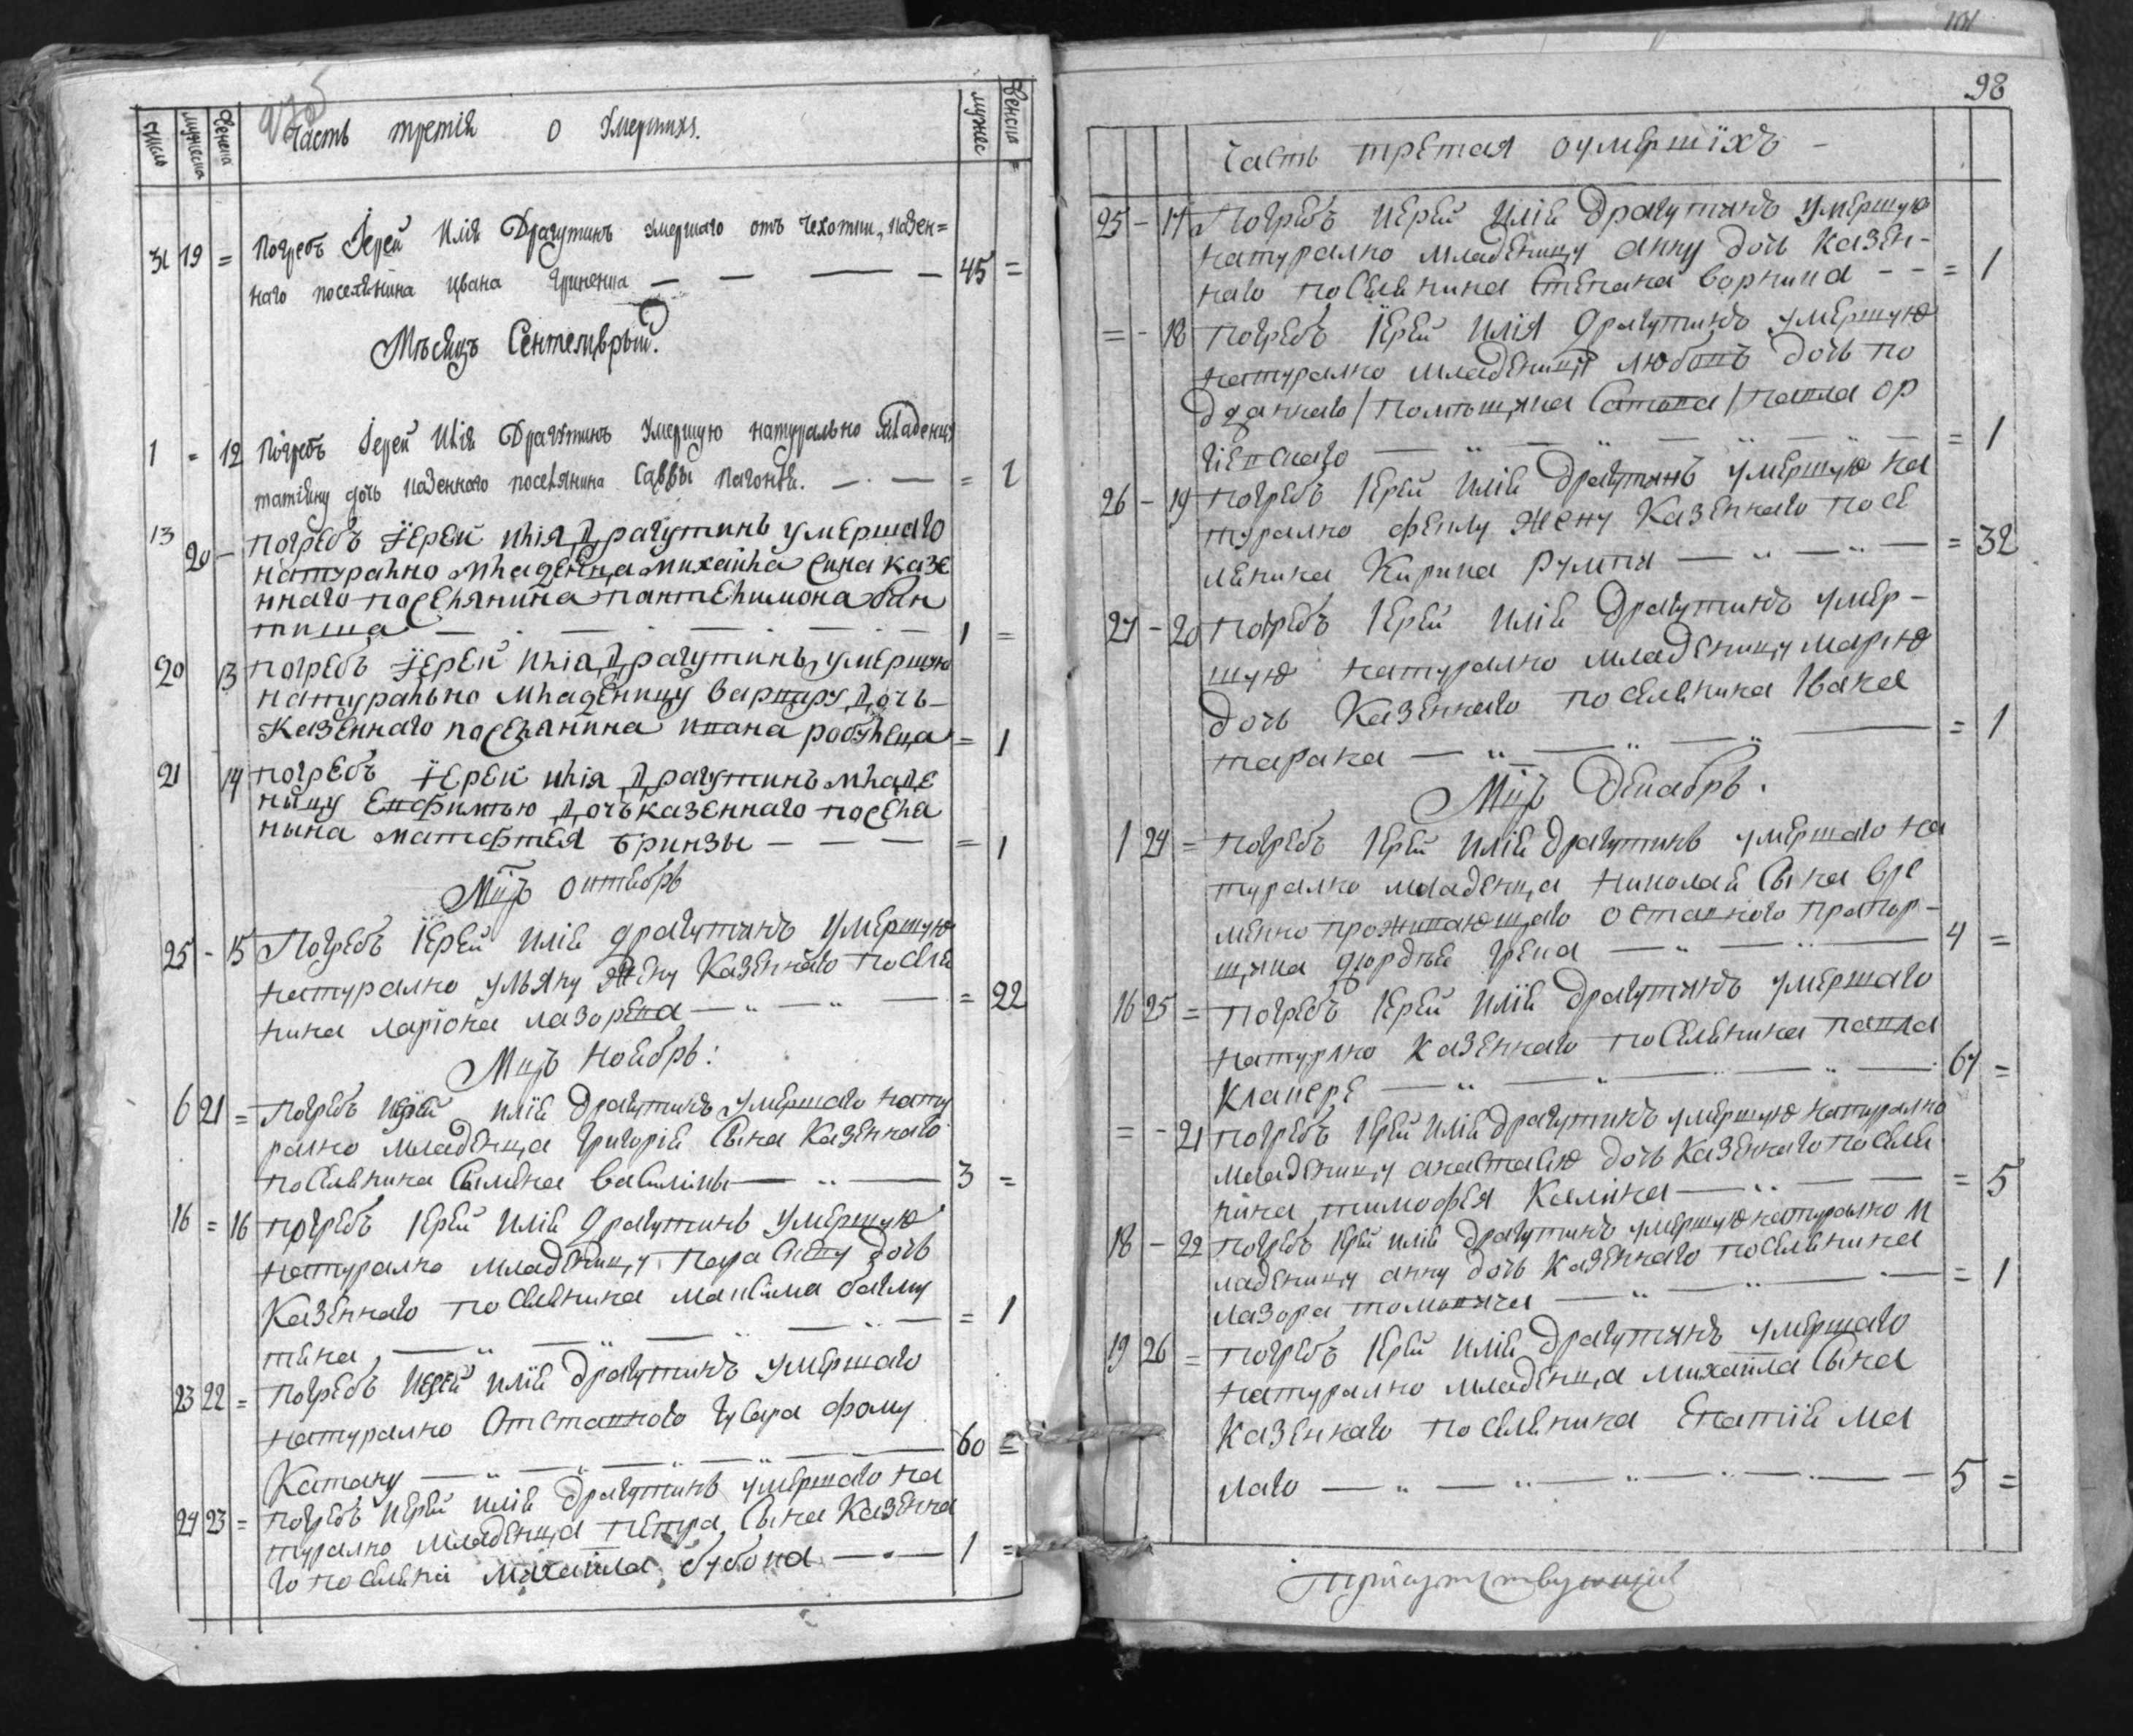 Число мужеска женска
Часть третія о Умершихъ.
мужес женска
31 19 = Погребъ Іерей Илія Драгутинъ умершаго отъ чехотки, казен=
наго поселянина ивана Гриненка — — — — 45 =
Мѣсецъ Сентемврый.
1 = 12 Погребъ Іерей Илія Драгутинъ Умершую натурально Младеницу
татіяну дочь казенного поселянина Саввы — . — = 2
13 20 — погребъ Іерей илія Драгутинъ умершаго
натурално младенца михаила сина казе
ннаго поселянина пантелимона бан
тиша — . — . — . — . — 1 =
20 13 погребъ Іерей илія Драгутинъ умершую
натурально младеницу варвару дочь
казеннаго поселянина ивана = 1
21 14 погребъ Іерей илія Драгутинъ младе
ницу Евфимію дочь казеннаго поселя
нына матфтея бринзы — — — = 1
Мцъ октябрь
25 - 15 Погребъ Іерей Илія драгутинъ умершую
натурално ульяну жену казеннаго поселя
нина ларіона лазорека — „ — „ — = 22
Мцъ Ноябрь:
6 21 = Погребъ Иерей илія драгутинъ умершаго нату
рално младенца Григорій сына казеннаго
поселянина Сымиона василіцы — „ — 3 =
16 = 16 погребъ Іерей илія драгутинъ умершую
натурално младеницу параскеву дочь
казеннаго поселянина максима
тина, — „ — „ — „ — = 1
23 22 = погребъ Иерей илія драгутинъ умершаго
натурално отставного гусара фому
Катану — „ — „ — „ — „ — 60 =
24 23 = погребъ Иерей илія драгутинъ умершаго на
турално младенца петра сына казенна
го поселяни михаила бубока — . — 1 =
98
Часть третая оумершїхъ -
25 - 17 Погребъ Иерей Илія драгутинъ умершую
натурално младеницу анну дочь казен-
наго поселянина Степана ворника - - = 1
= - 18 погребъ Іерей илія драгутинъ умершую
натурално младеницу любовь дочь по
дданаго / помѣщика / павла ор
гієвскаго — „ — „ — „ — = 1
26 - 19 погребъ Іерей илія драгутинъ умершую на
турално феклу жену казеннаго посе
ленина Кирила румпя — „ — „ — = 32
27 - 20 погребъ Іерей илія драгутинъ умер-
шую натурално младеницу марию
дочь казеннаго поселянина Ивана
тарана — „ — „ — „ — = 1
Мцъ декабрь.
1 24 = погребъ Іерей илія драгутинъ умершаго на
турално младенца николай сына вре
менно проживающаго оставного прапор-
щика дюрдѣй грека — „ — „ — 4 =
16 25 = погребъ Іерей илія драгутинъ умершаго
натурлно казеннаго поселянина павла
Клапере — „ — „ — „ — „ — 67 =
= - 21 погребъ Іерей илія драгутинъ умершую натурално
младеницу анастасію дочь казеннаго поселя
нина тимофея Калина — „ — — = 5
18 - 22 погребъ Іерей илія драгутинъ умершую натурално м
ладеницу анну дочь казеннаго поселянина
лазора — „ — „ — „ — = 1
19 26 = погребъ Іерей илія драгутинъ умершаго
натурално младенца михаила сына
казеннаго поселянина Епатій ма
лаго — „ — „ — „ — „ — 5 =